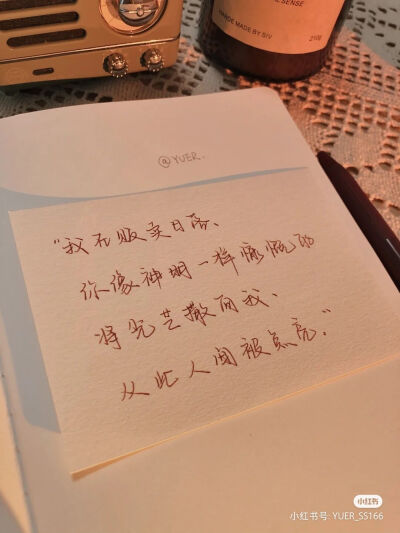 SENSE
MADE BY SIV
250g
@YUER.
"我不贩卖日落、
你像神明一样慷慨的
将光芒撒向我、
从此人间被点亮."
小红书
小红书号: YUER_SS166